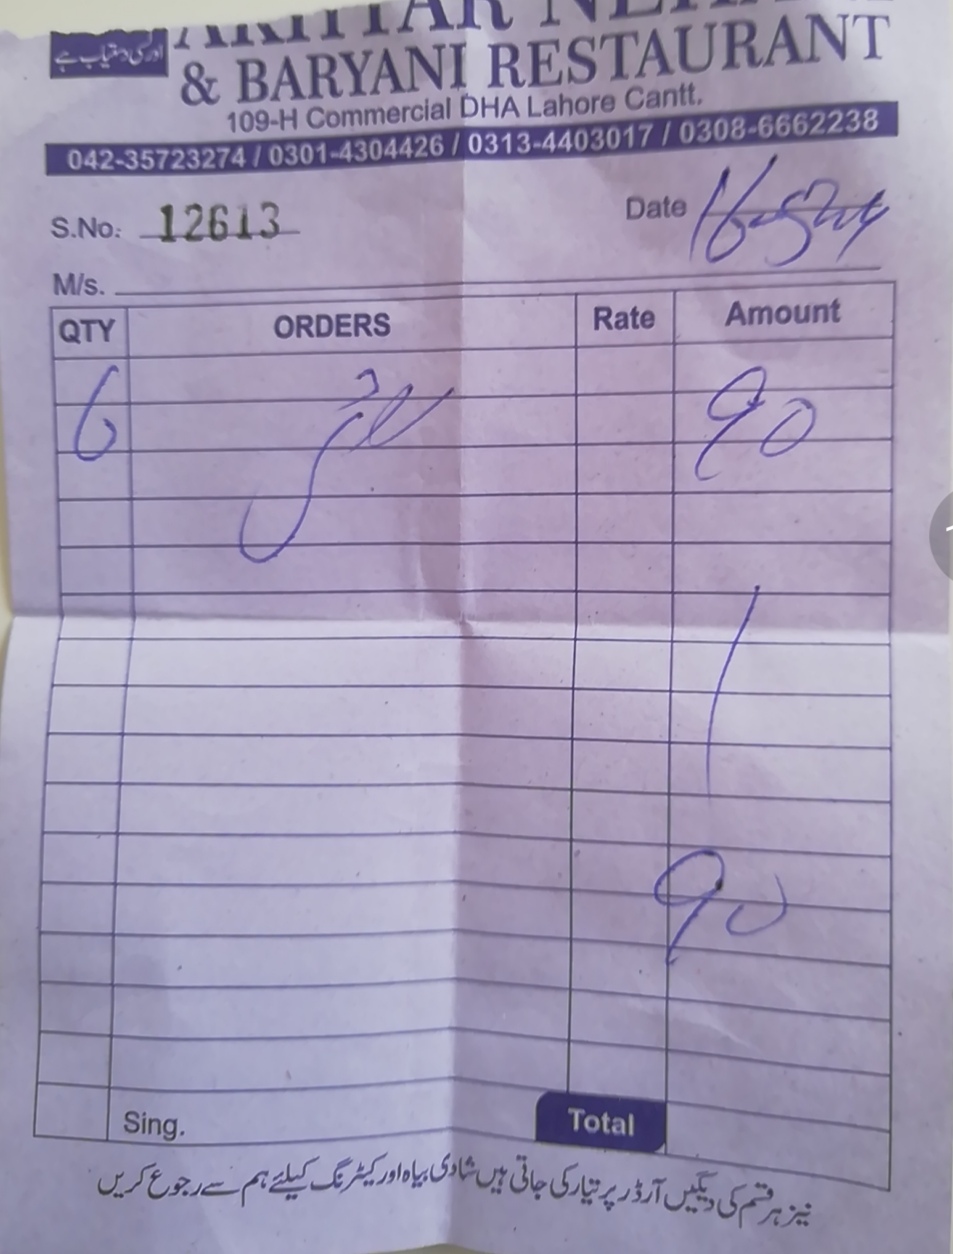 اور کی دستیاب ہے
& BARYANI RESTAURANT
109-H Commercial DHA Lahore Cantt.
042-35723274 / 0301-4304426 / 0313-4403017 / 0308-6662238
S.No: 12613
Date
M/s.
QTY ORDERS Rate Amount
6 90
90
Sing. Total
نیز ہر قسم کی دیگیں آرڈر پر تیار کی جاتی ہیں شادی بیاہ اور کیٹرنگ کیلئے ہم سے رجوع کریں